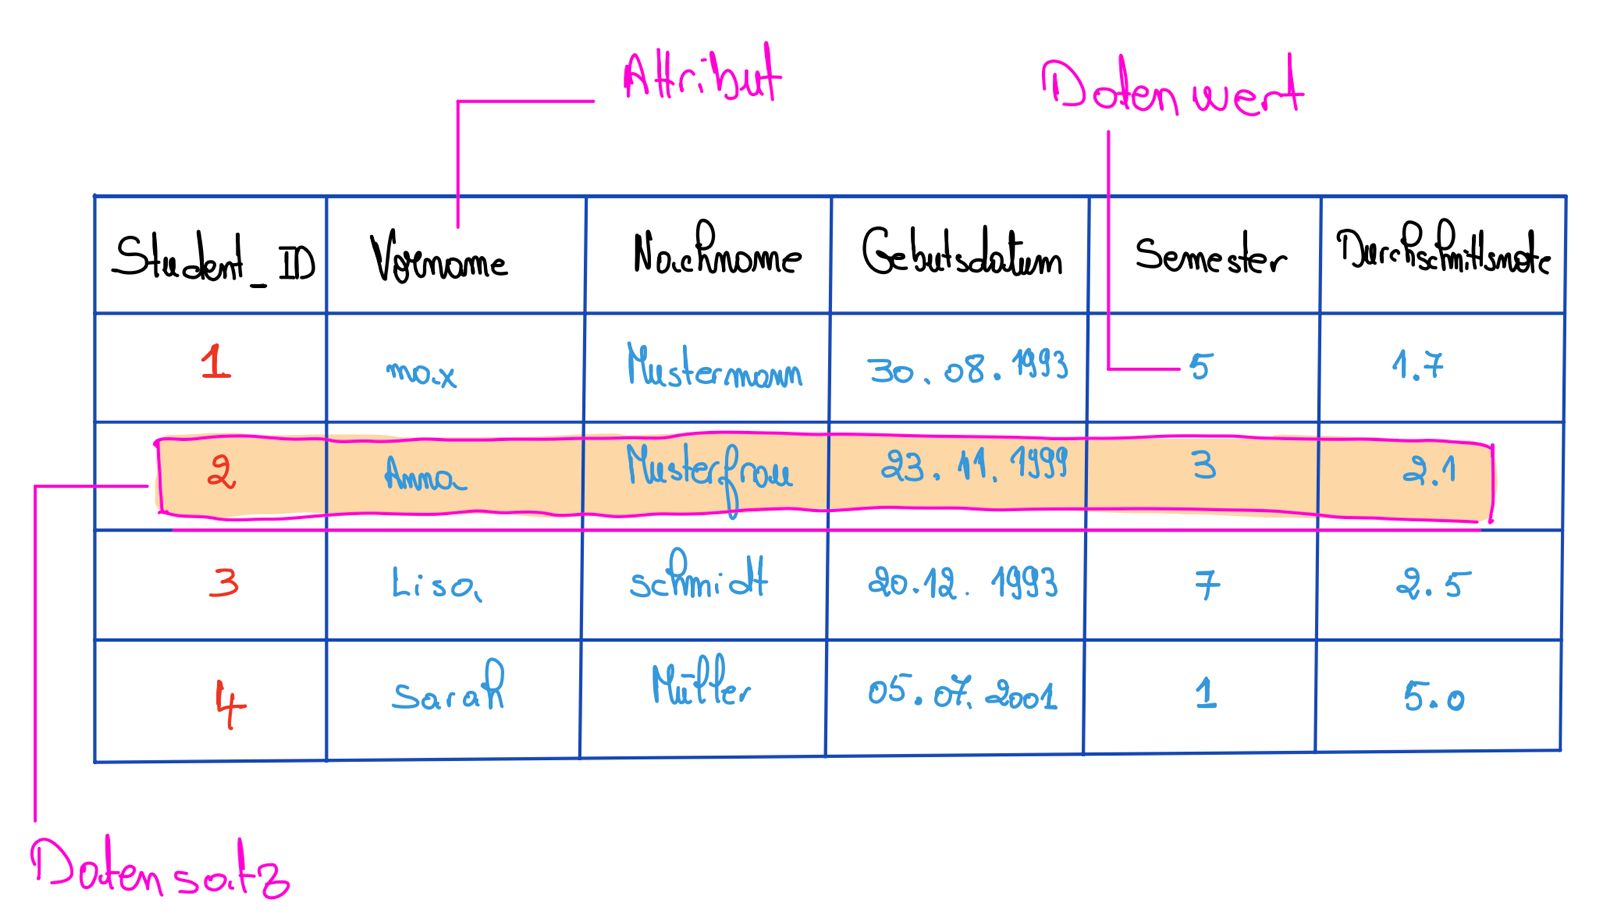 Attribut
Datenwert
Student_ID Vorname Nachname Gebutsdatum Semester Durchschnittsnote
1 max Mustermann 30.08.1993 5 1.7
2 Anna Musterfrau 23.11.1999 3 2.1
3 Lisa schmidt 20.12.1993 7 2.5
4 Sarah Müller 05.07.2001 1 5.0
Datensatz